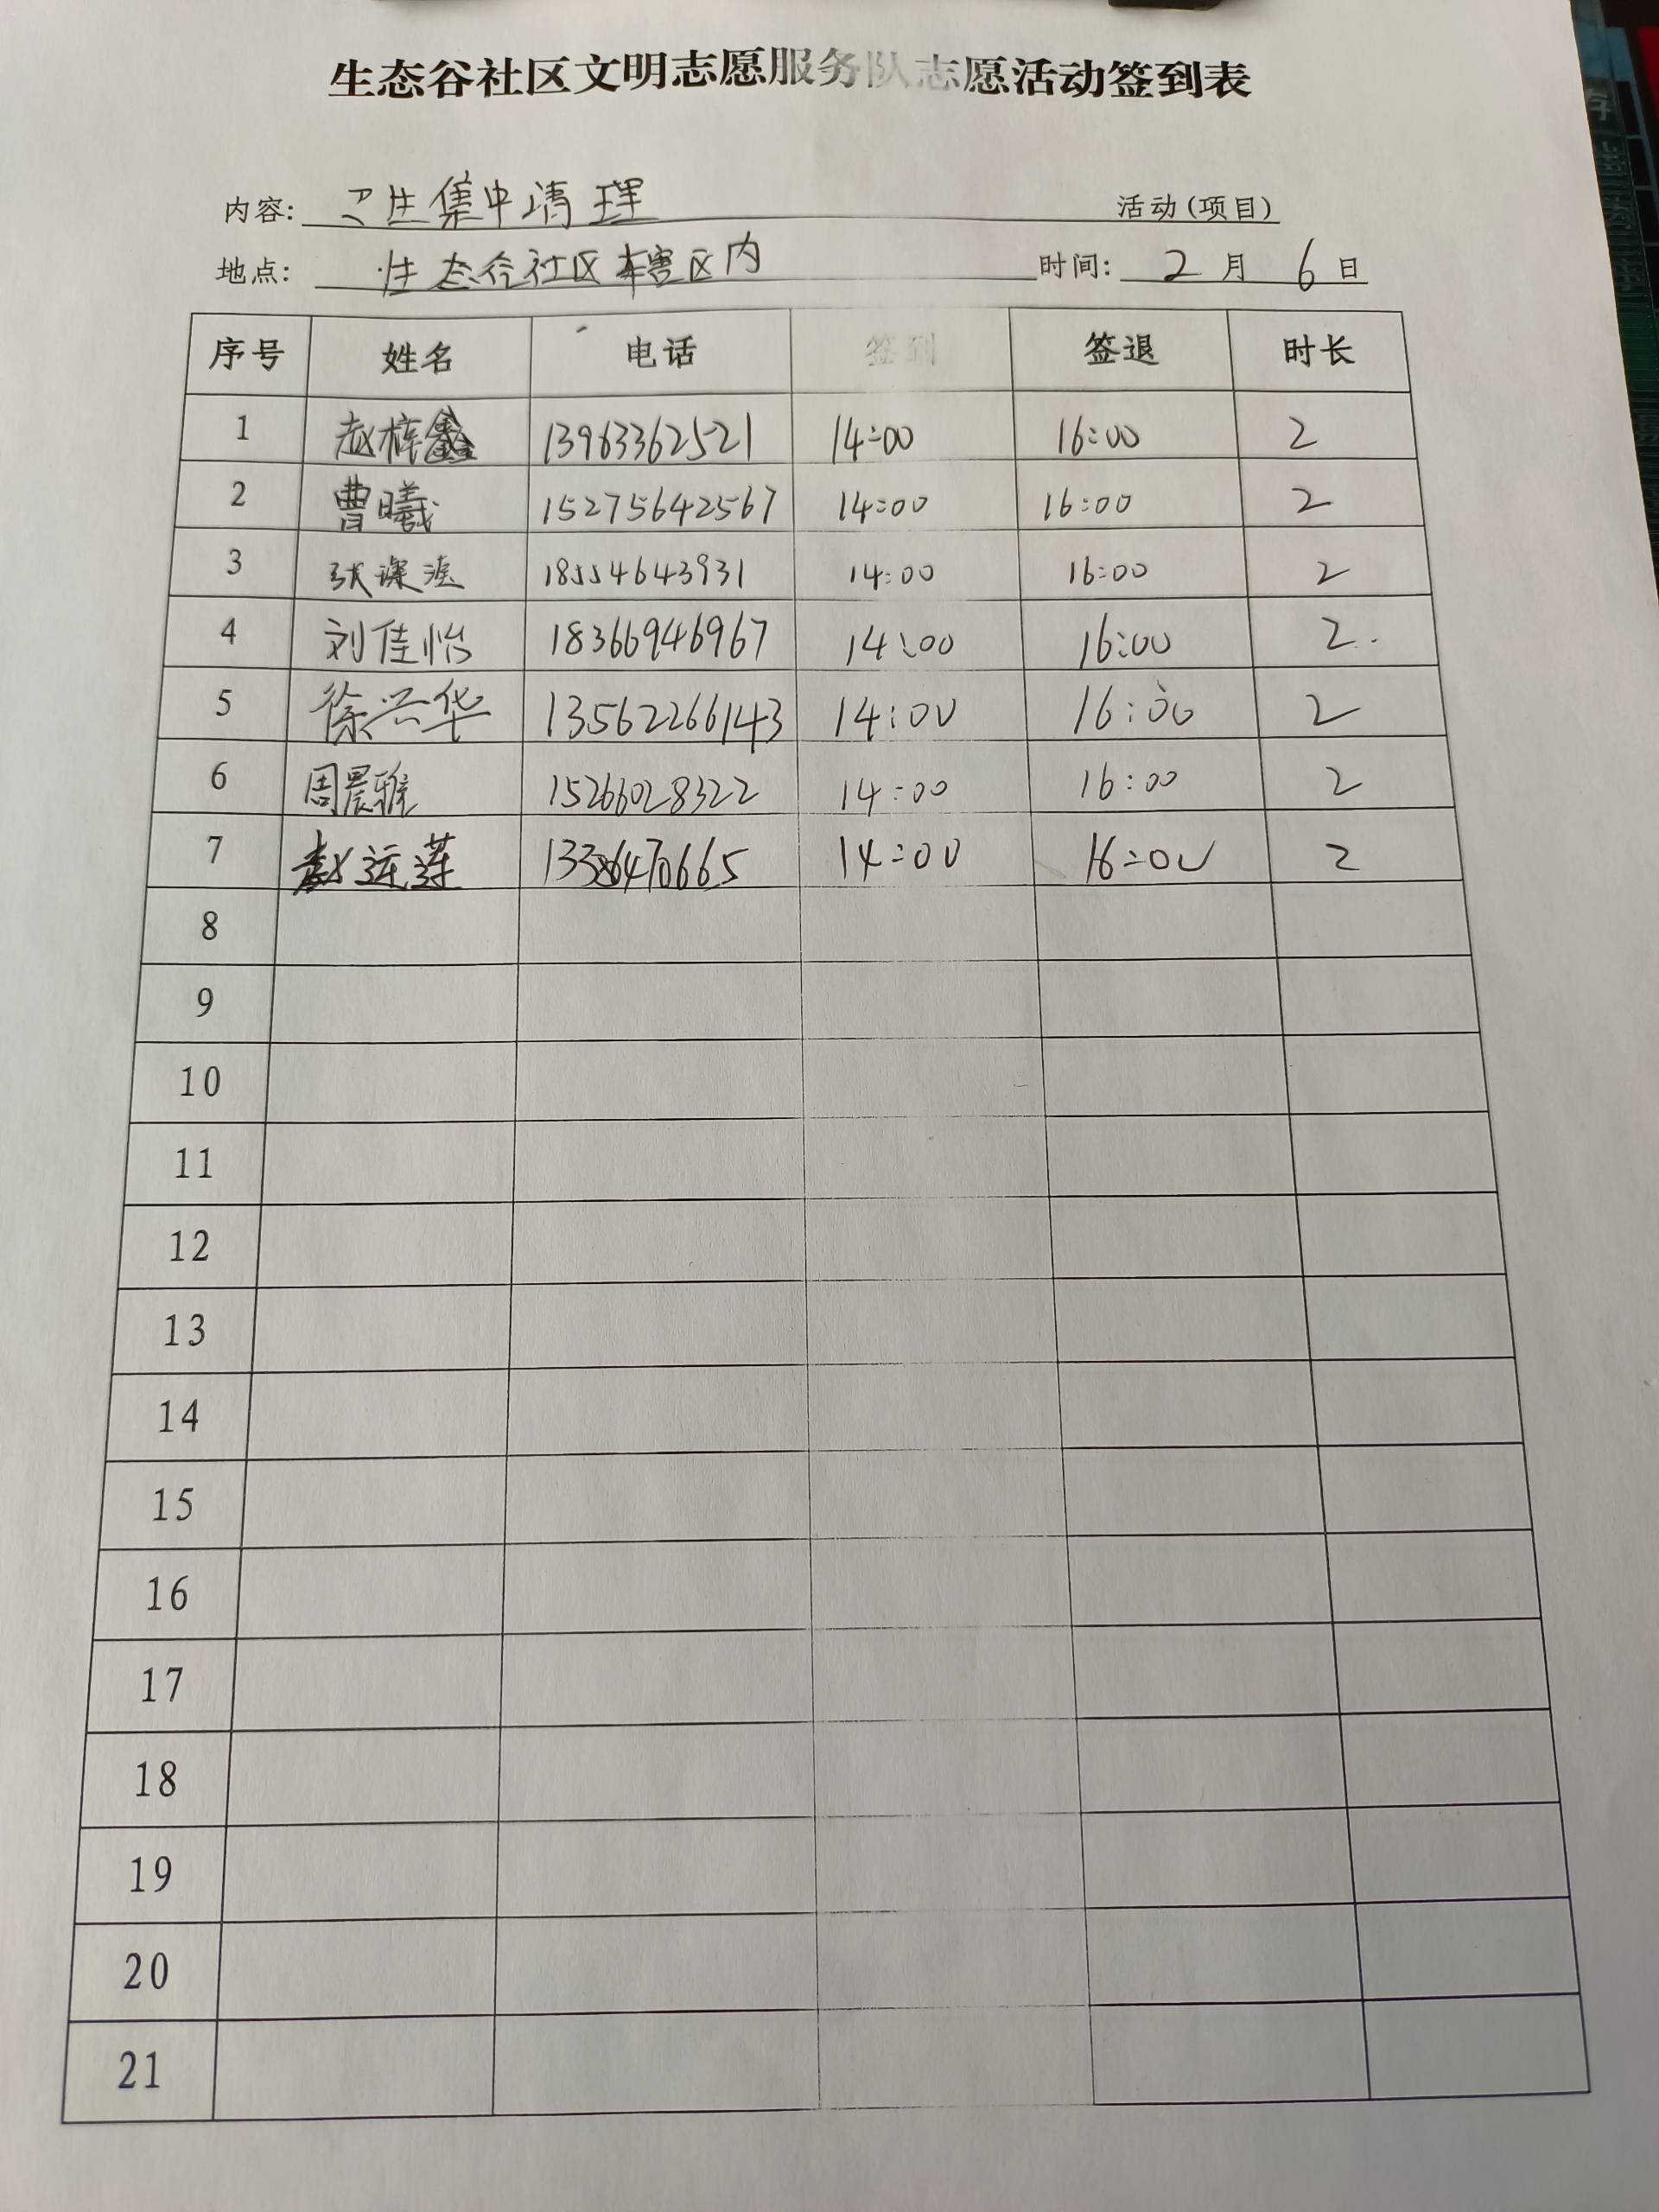 生态谷社区文明志愿服务队志愿活动签到表
内容: 卫生集中清理 活动(项目)
地点: 生态谷社区辖区内 时间: 2 月 6 日
序号 姓名 电话 签到 签退 时长
1 赵梓鑫 13963362521 14:00 16:00 2
2 曹曦 15275642567 14:00 16:00 2
3 张 18554643931 14:00 16:00 2
4 刘佳怡 18366946967 14:00 16:00 2.
5 徐兴华 13562266143 14:00 16:00 2
6 周晨雅 15266028322 14:00 16:00 2
7 赵运莲 14:00 16:00 2
8
9
10
11
12
13
14
15
16
17
18
19
20
21